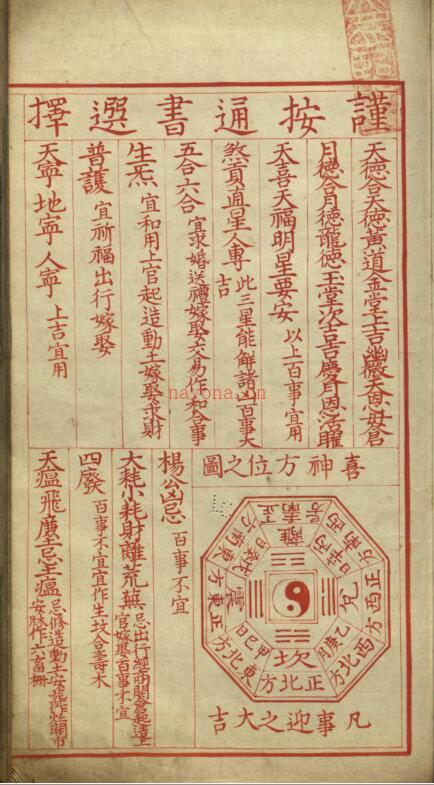 謹按通書選擇
天德合天德黃道金堂玉吉幽微天恩母倉
月德合月德龍德玉堂次吉喜慶月恩活曜
天喜天福明星要安 以上百事宜用
煞貢直星人專 此三星能解諸凶百事大吉
五合六合 宜求婚送禮嫁娶交易作和合事
生炁 宜和用上官起造動土嫁娶求財
普護 宜祈福出行嫁娶
天寧地寧人寧 上吉宜用
喜神方位之圖
離 正南方
兌 正西方
坎 正北方
震 正東方
乙庚 西北方
甲己日 東北方
凡事迎之大吉
楊公凶忌 百事不宜
大耗小耗財離荒蕪 忌出行經商開倉起造上官嫁娶百事不宜
四廢 百事不宜宜作生坟合壽木
天瘟飛廉 忌修造動土安 作灶開市安 作六畜柵
nayona.cn